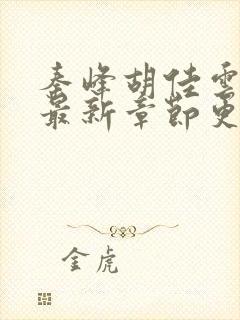 秦峰胡佳雲
最新章節更
金虎